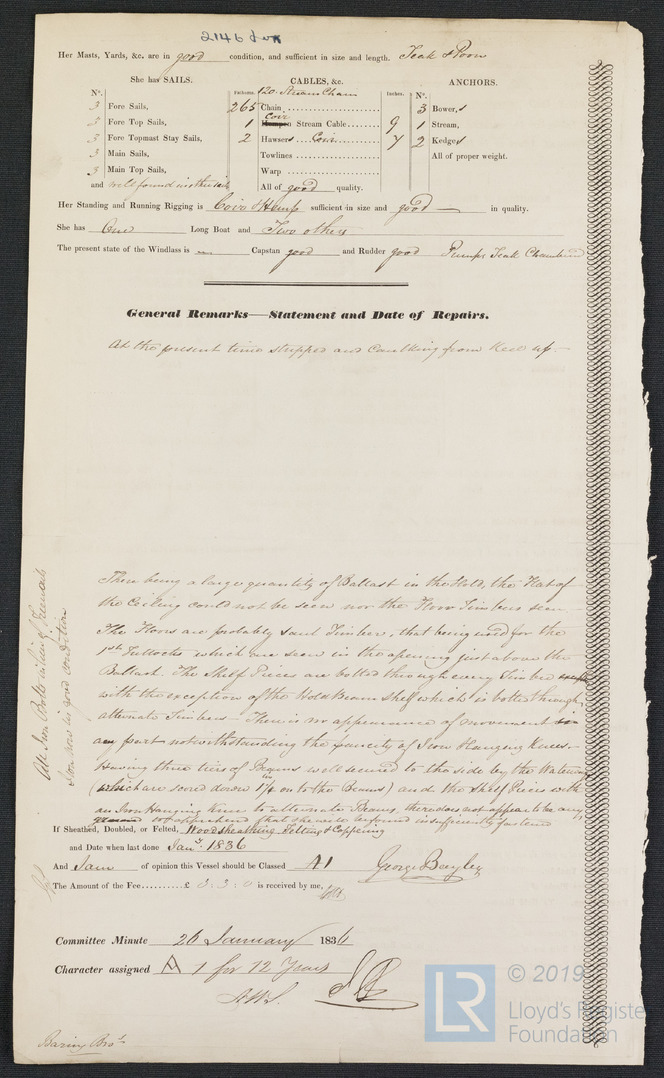 2146 Lon
Her Masts, Yards, &c. are in good condition, and sufficient in size and length. Teak & Poon
She has SAILS.
CABLES, &c.
ANCHORS.
N°.
3 Fore Sails,
3 Fore Top Sails,
3 Fore Topmast Stay Sails,
3 Main Sails,
3 Main Top Sails,
and well found in others
Fathoms. 120. Stream Chain Inches.
265 Chain
1 Coir Hempen Stream Cable 9
2 Hawsers Coir 7
Towlines
Warp
All of good quality.
N°.
3 Bowers
1 Stream,
2 Kedges
All of proper weight.
Her Standing and Running Rigging is Coir & Hemp sufficient in size and good in quality.
She has One Long Boat and Two others
The present state of the Windlass is — Capstan good and Rudder good Pumps Teak Chambered
General Remarks—Statement and Date of Repairs.
At the present time stripped and caulking from Keel up.
There being a large quantity of Ballast in the Hold, the Flat of
the Ceiling could not be seen nor the Floor Timbers seen.
The Floors are probably Saul Timber, that being used for the
1st Futtocks which are seen in the opening just above the
Ballast. The Shelf Pieces are bolted through every Timber except
with the exception of the Hold Beam Shelf which is bolted through
alternate Timbers – There is no appearance of movement in
any part notwithstanding the paucity of Iron Hanging Knees.
Having three tiers of Beams well secured to the side by the Waterways
(which are scored down 1½ in on to the Beams) and the Shelf Pieces with
an Iron Hanging Knee to alternate Beams, there does not appear to be any
ground to apprehend that she will be found insufficiently fastened
All Iron Bolts in lieu of Treenails
Iron now in good condition
If Sheathed, Doubled, or Felted, Wood sheathing Felting & Coppering
and Date when last done Jany. 1836
And I am of opinion this Vessel should be Classed A1 George Bayley
The Amount of the Fee £ 3 : 3 : 0 is received by me,
Committee Minute 26 January 1836
Character assigned A 1 for 12 Years
Baring Bros
LR
© 2019
Lloyd's Register
Foundation